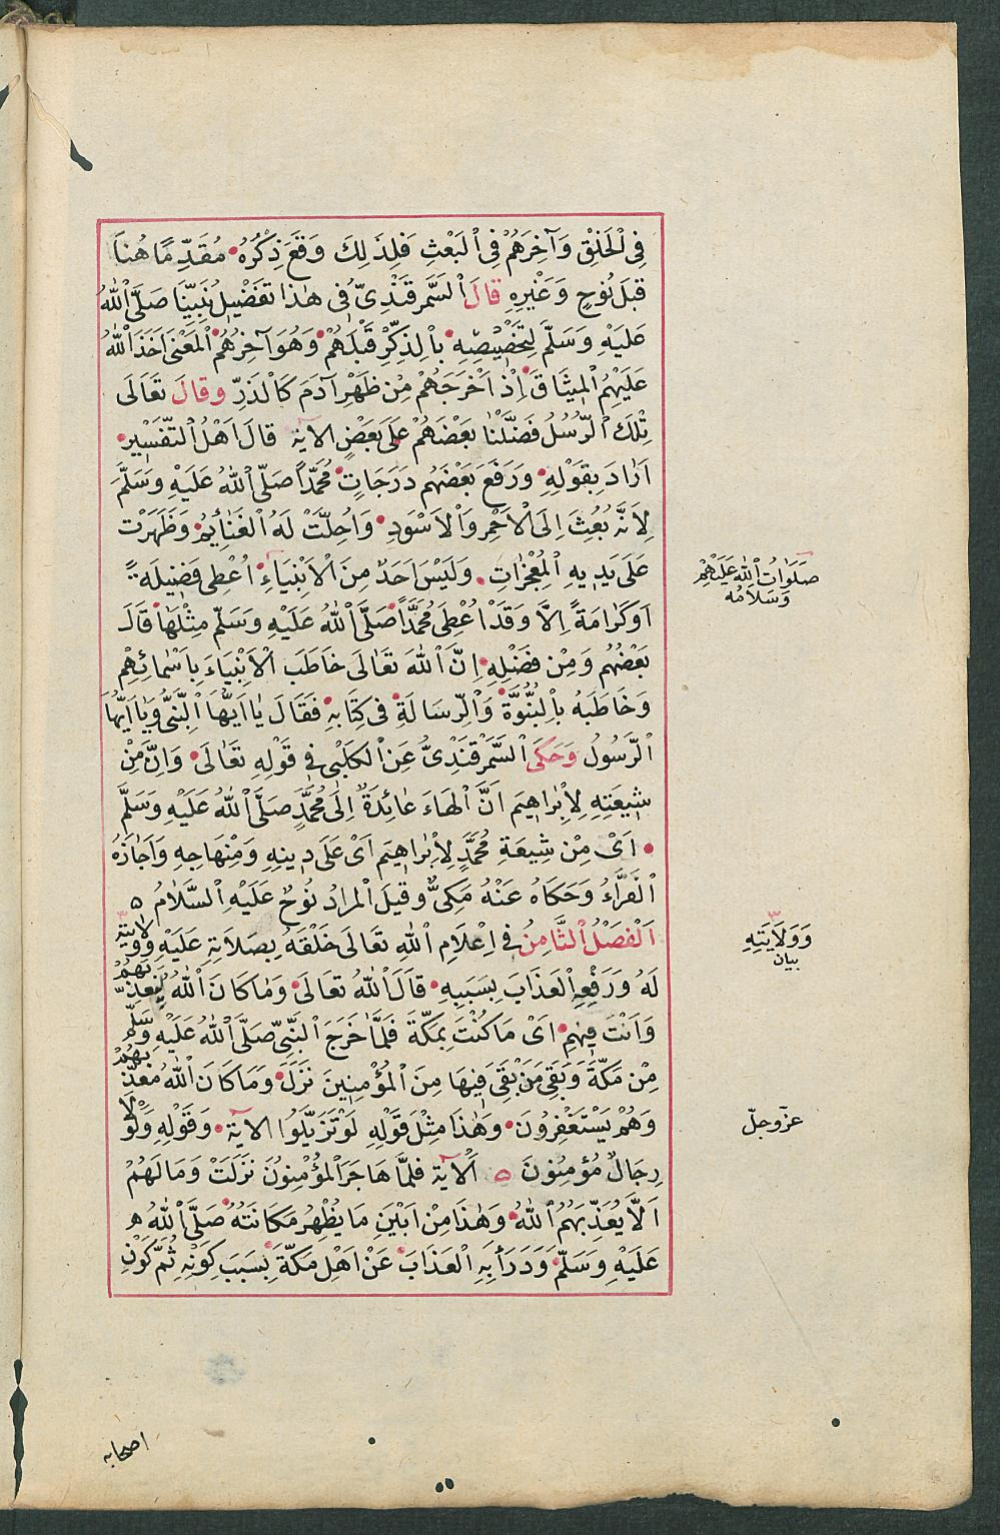 فِى الْخَلْقِ وَآخِرَهُمْ فِى الْبَعْثِ فَلِذٰلِكَ وَقَعَ ذِكْرُهُ مُقَدَّمًا هُنَا
قَبْلَ نُوحٍ وَغَيْرِهِ قَالَ السَّمَرْقَنْدِىُّ فِى هٰذَا تَفْضِيلُ نَبِيِّنَا صَلَّى اللّٰهُ
عَلَيْهِ وَسَلَّمَ لِتَخْصِيصِهِ بِالذِّكْرِ قَبْلَهُمْ وَهُوَ آخِرُهُمْ الْمَعْنَى اَخَذَ اللّٰهُ
عَلَيْهِمُ الْمِيثَاقَ اِذْ اَخْرَجَهُمْ مِنْ ظَهْرِ آدَمَ كَالذَّرِّ وقَالَ تَعَالَى
تِلْكَ الرُّسُلُ فَضَّلْنَا بَعْضَهُمْ عَلَى بَعْضٍ الآية قَالَ اَهْلُ التَّفْسِيرِ
اَرَادَ بِقَوْلِهِ وَرَفَعَ بَعْضَهُم دَرَجَاتٍ مُحَمَّدًا صَلَّى اللّٰهُ عَلَيْهِ وَسَلَّمَ
لِاَنَّهُ بُعِثَ اِلَى الْاَحْمَرِ وَالْاَسْوَدِ وَاُحِلَّتْ لَهُ الْغَنَائِمُ وَظَهَرَتْ
عَلَى يَدَيهِ الْمُعْجِزَاتِ وَلَيْسَ اَحَدٌ مِنَ الْاَنْبِيَاءِ اُعْطِىَ فَضِيلَةً
صَلَوَاتُ اللّٰهِ عَلَيْهِمْ
وَسَلَامُه
اَوْ كَرَامَةً اِلَّا وَقَدْ اُعْطِىَ مُحَمَّدًا صَلَّى اللّٰهُ عَلَيْهِ وَسَلَّمَ مِثْلَهَا قَالَ
بَعْضُهُم وَمِنْ فَضْلِهِ اِنَّ اللّٰهَ تَعَالَى خَاطَبَ الْاَنْبِيَاءَ بِاَسْمَائِهِمْ
وَخَاطَبَهُ بِالنُّبُوَّةِ وَالرِّسَالَةِ فِى كِتَابِهِ فَقَالَ يَا اَيُّهَا النَّبِىُّ وَيَا اَيُّهَا
الرَّسُولُ وَحَكَى السَّمَرْقَنْدِىُّ عَنِ الْكَلْبِى فِى قَوْلِهِ تَعَالَى وَاِنَّ مِنْ
شِيعَتِهِ لِاِبْرَاهِيمَ اَنَّ الْهَاءَ عَائِدَةٌ اِلَى مُحَمَّدٍ صَلَّى اللّٰهُ عَلَيْهِ وَسَلَّمَ
اَىْ مِنْ شِيعَةِ مُحَمَّدٍ لِاِبْرَاهِيَم اَىْ عَلَى دِينِهِ وَمِنْهَاجِهِ وَاَجَازَهُ
الْفَرَّاءُ وَحَكَاهُ عَنْهُ مَكِىٌّ وَقِيلَ الْمرادُ نُوحٌ عَلَيْهِ السَّلَامُ ه
اَلْفَصْلُ الثَّامِنُ فِى اِعْلَامِ اللّٰهِ تَعَالَى خَلْقَهُ بِصَلَاتِهِ عَلَيْهِ وَوِلَايَتِهِ
وَوَلَايَتِهِ
بيان
لَهُ وَرَفْعِهِ الْعَذَابَ بِسَبَبِهِ قَالَ اللّٰهُ تَعَالَى وَمَا كَانَ اللّٰهُ لِيُعَذِّبَهُمْ
وَاَنْتَ فِيهِمْ اَىْ مَا كُنْتَ بِمَكَّةَ فَلَمَّا خَرَجَ النَّبِىُّ صَلَّى اللّٰهُ عَلَيْهِ وَسَلَّمَ
مِنْ مَكَّةَ وَبَقِىَ مَنْ بَقِىَ فِيهَا مِنَ الْمُؤْمِنِينَ نَزَلَ وَمَا كَانَ اللّٰهُ مُعَذِّبَهُمْ
وَهُمْ يَسْتَغْفِرُونَ وَهٰذَا مِثْلَ قَوْلِهِ لَوْ تَزَيَّلُوا الآية وَقَوْلِهِ وَلَوْلَا
عزّ وجلّ
رِجَالٌ مُؤْمِنُونَ ه اَلْآية فَلَمَّا هَاجَرَ الْمُؤْمِنُونَ نَزَلَتْ وَمَا لَهُمْ
اَلَّا يُعَذِّبَهُمُ اللّٰهُ وَهٰذَا مِنْ اَبْيَنِ مَا يُظْهِرُ مَكَانَتَهُ صَلَّى اللّٰهُ ه
عَلَيْهِ وَسَلَّمَ وَدَرَأَ بِهِ الْعَذَابَ عَنْ اَهْلِ مَكَّةَ بِسَبَبِ كَوْنِهِ ثُمَّ كَوْنِ
اصحابه